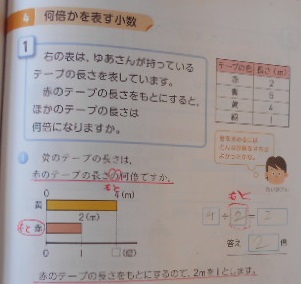 4 何倍かを表す小数
1
右の表は、ゆあさんが持っている
テープの長さを表しています。
赤のテープの長さをもとにすると、
ほかのテープの長さは
何倍になりますか。
テープの色 長さ(m)
赤 2
青 5
黄 4
緑 1
黄のテープの長さは、
赤のテープの長さの何倍ですか。
もと
0 4(m)
黄
2(m)
もと 赤
0 1 (倍)
もと
4 ÷ 2 = 2
答え 2 倍
赤のテープの長さをもとにするので、2mを1とします。